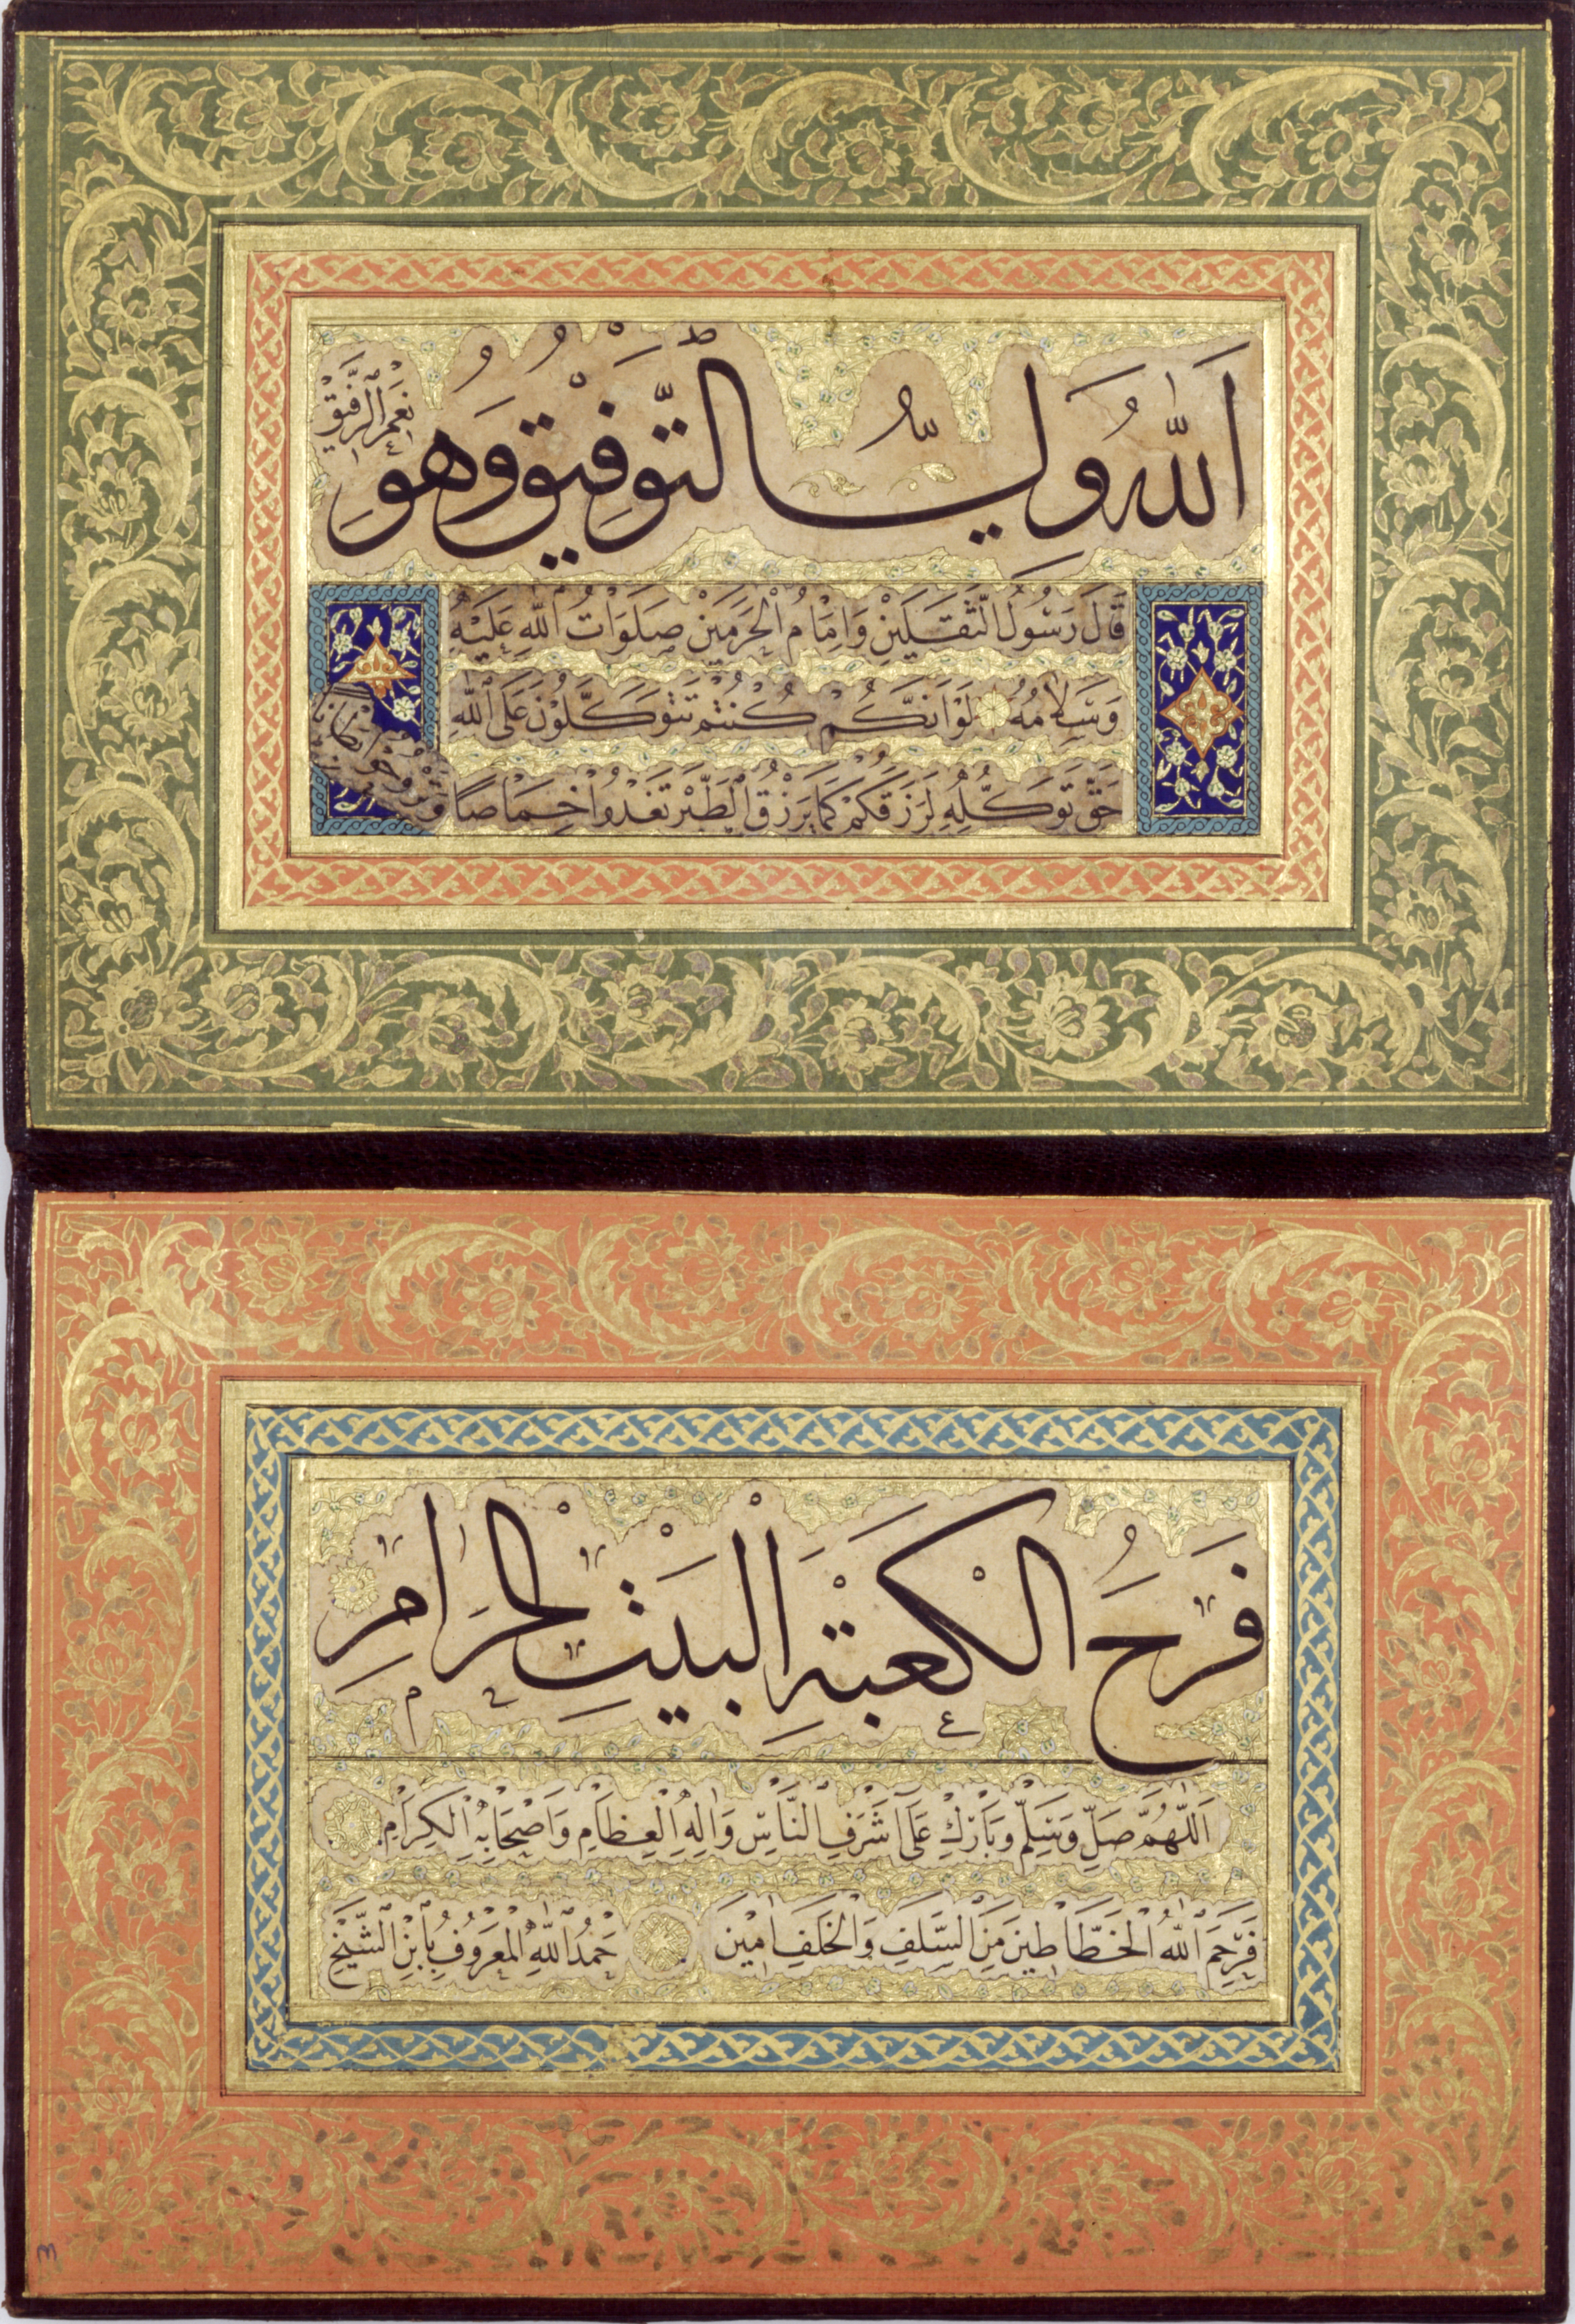 اَللّٰهُ وَلِيُّ التَّوْفِيْقِ وَهُوَ
نِعْمَ الرَّفِيْقُ
قَالَ رَسُولُ الثَّقَلَيْنِ وَاِمَامُ الْحَرَمَيْنِ صَلَوَاتُ اللّٰهِ عَلَيْهِ
وَسَلَامُهُ لَوْ اَنَّكُمْ كُنْتُمْ تَتَوَكَّلُوْنَ عَلَى اللّٰهِ
حَقَّ تَوَكُّلِهِ لَرَزَقَكُمْ كَمَا يَرْزُقُ الطَّيْرَ تَغْدُوا خِمَاصًا
وَتَرُوحُ
فَرَحُ الْكَعْبَةِ الْبَيْتِ الْحَرَامِ
اَللّٰهُمَّ صَلِّ وَسَلِّمْ وَبَارِكْ عَلَى اَشْرَفِ النَّاسِ وَاٰلِهِ الْعِظَامِ وَاَصْحَابِهِ الْكِرَامِ
فَرَحِمَ اللّٰهُ الْخَطَّاطِينَ مِنَ السَّلَفِ وَالْخَلَفِ اٰمِيْنَ حَمْدُ اللّٰهِ الْمَعْرُوفُ بِابْنِ الشَّيْخِ